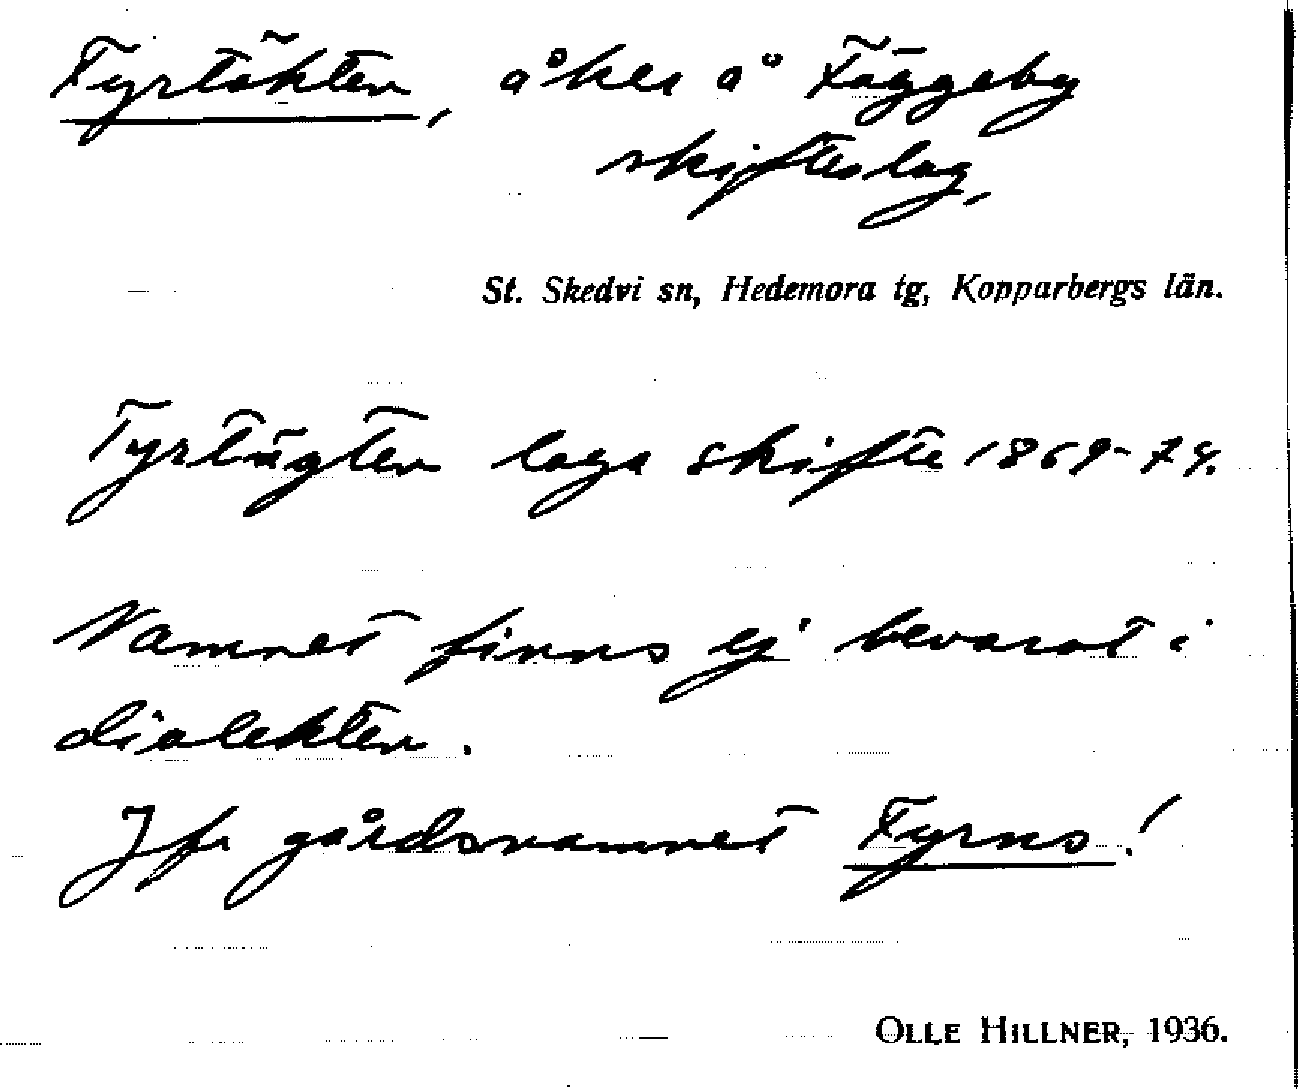 Fyrtäkten, åker å Fäggeby
skifteslag,
St. Skedvi sn, Hedemora tg, Kopparbergs län.
Tyrtägten laga skifte 1869-74.
Namnet finns ej bevarat i
dialekten.
Jfr gårdsnamnet Fyrns!
OLLE HILLNER, 1936.